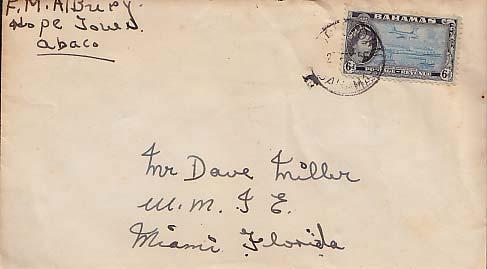 F. M. Albury.
Hope Town.
Abaco
BAHAMAS
6d POSTAGE & REVENUE 6d
Mr Dave Miller
W. M. I E.
Miami Florida